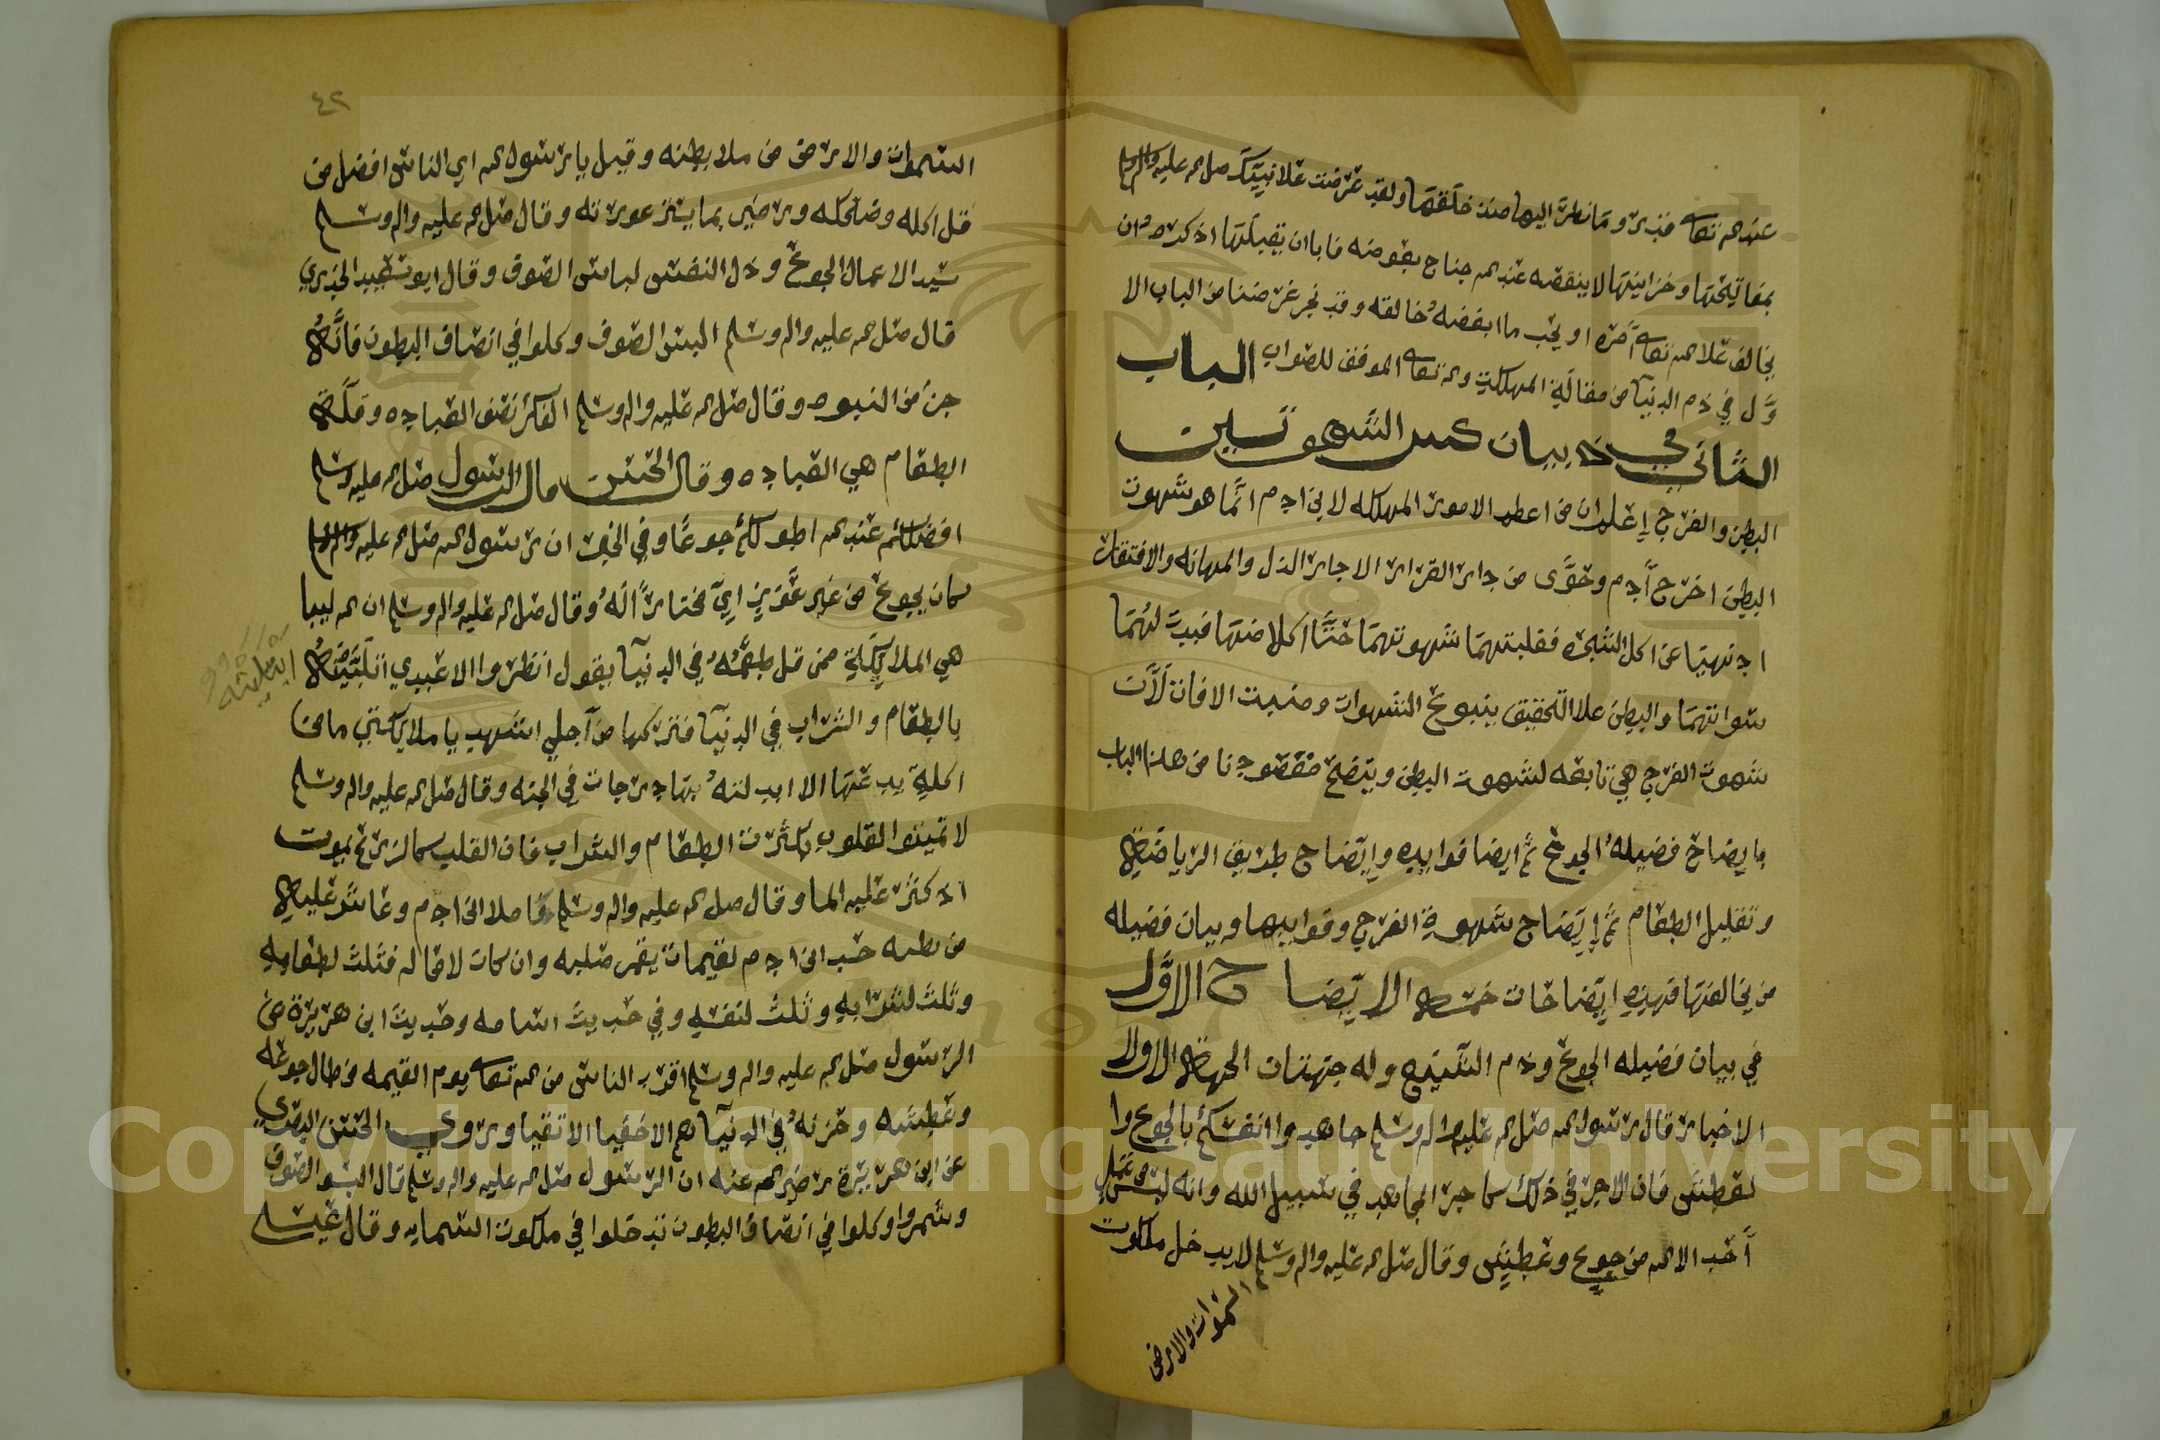 عندالله تعالى قدر وما نظر اليها منذ خلقها ولقد عرضت علا نبيك صلى الله عليه واله وسلم
بمفاتيحها وخزاينها لا ينقصه عندالله جناح بعوضه فابا ان يقبلها اذ كره ان
يخالف علا الله تعالى امره او يحب ما ابغضه خالقه وقد نجز غرضنا من الباب الا
ول في ذم الدنيا من مقالة المهلكات والله تعالى الموفق للصواب الباب
الثاني في بيان كسر الشهوتين
البطن والفرج إعلم ان من اعظم الامور المهلكه لابن ادم انما هو شهوت
البطن اخرج آدم وحوى من دار القرار الا دار الذل والمهانه والافتقار
اذ نهيا عن اكل الشجره فغلبتهما شهوتهما حتا اكلا منها فبدت لهما
سواتهما والبطن علا التحقيق ينبوع الشهوات ومنبت الافات لان
شهوت الفرج هي تابعه لشهوت البطن ويتضح مقصودنا من هذا الباب
بايضاح فضيله الجوع ثم ايضا فوايده وايضاح طريق الرياضة
وتقليل الطعام ثم إيضاح شهوة الفرج وفوايدها وبيان فضيله
من يخالفها فهذه ايضاحات خمسة الايضاح الاول
في بيان فضيله الجوع وذم الشبع وله جهتان الجهة الاولا
الاخبار قال رسول الله صلى الله عليه واله وسلم جاهدوا انفسكم بالجوع وا
لعطش فان الاجر في ذلك كاجر المجاهد في سبيل الله وانه ليس من عمل
أحب الا الله من جوع وعطش وقال صلى الله عليه واله وسلم لا يدخل ملكوت
السموات والارض
٤٢
السموات والارض من ملا بطنه وقيل يا رسول الله اي الناس افضل من
قل اكله وضحكه ورضي بما يستر عورته وقال صلى الله عليه واله وسلم
سيد الاعمال الجوع وذل النفس لباس الصوف وقال ابو سعيد الخدري
قال صلى الله عليه واله وسلم البسو الصوف وكلوا في انصاف البطون فانه
جزء من النبوه وقال صلى الله عليه واله وسلم الفكر نصف العباده وقلة
الطعام هي العباده وقال الحسن قال الرسول صلى الله عليه وسلم
افضلكم عند الله اطولكم جوعا وفي الخبر ان رسول الله صلى الله عليه واله وسلم
كان يجوع من غير عوز اي مختارا له وقال صلى الله عليه واله وسلم ان الله ليبا
هي الملايكة ممن قل طعمه في الدنيا يقول انظروا الا عبدي ابتليته
بالطعام والشراب في الدنيا فتركهما من أجلي اشهد يا ملايكتي ما من
اكلة يدعها الا ابدلته بها درجات في الجنه وقال صلى الله عليه واله وسلم
لا تميتوا القلوب بكثرت الطعام والشراب فان القلب كالزرع يموت
اذ كثر عليه الما وقال صلى الله عليه واله وسلم ما ملا ابن ادم وعا شر عليه
من بطنه حسب ابن ادم لقيمات يقمن صلبه وان كان لا محاله فثلث لطعامه
وثلث لشرابه وثلث لنفسه وفي حديث اسامه وحديث ابي هريرة عن
الرسول صلى الله عليه واله وسلم اقرب الناس من الله تعالى يوم القيمه من طال جوعه
وعطشه وحزنه في الدنيا هم الاخفيا الاتقيا وروى الحسن البصري
عن ابي هريرة رضي الله عنه ان الرسول صلى الله عليه واله وسلم قال البسوا الصوف
وشمروا وكلوا في انصاف البطون تدخلوا في ملكوت السمايه وقال عيسى
Copyright © King Saud University
1957